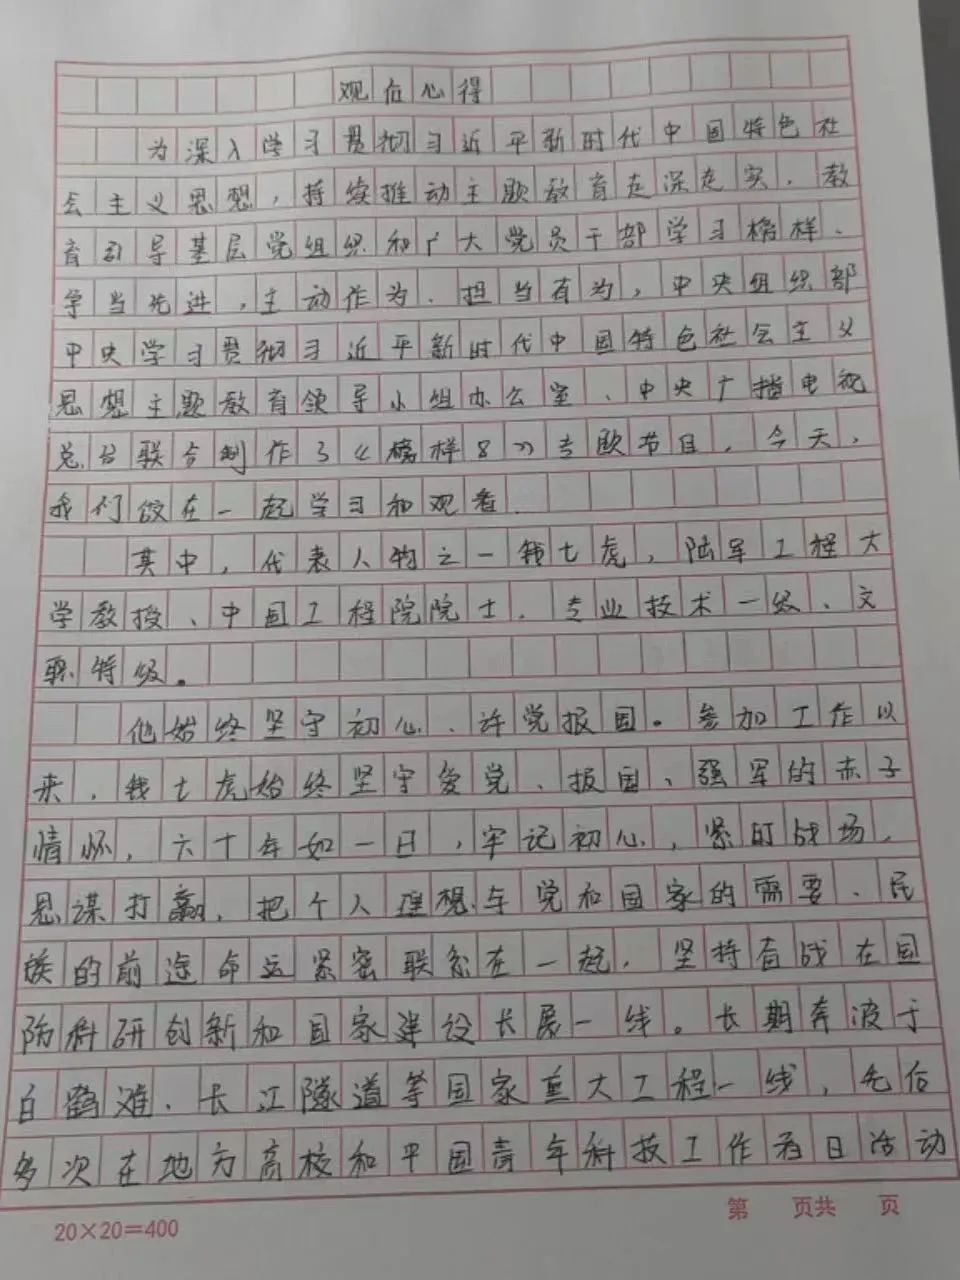 观后心得
为深入学习贯彻习近平新时代中国特色社
会主义思想，持续推动主题教育走深走实，教
育引导基层党组织和广大党员干部学习榜样、
争当先进，主动作为、担当有为，中央组织部
中央学习贯彻习近平新时代中国特色社会主义
思想主题教育领导小组办公室、中央广播电视
总台联合制作了《榜样8》专题节目，今天，
我们在一起学习和观看.
其中，代表人物之一钱七虎，陆军工程大
学教授、中国工程院院士，专业技术一级、文
职特级。
他始终坚守初心、许党报国。参加工作以
来，钱七虎始终坚守爱党、报国、强军的赤子
情怀，六十年如一日，牢记初心，紧盯战场，
思谋打赢，把个人理想与党和国家的需要、民
族的前途命运紧密联系在一起，坚持奋战在国
防科研创新和国家建设发展一线。长期奔波于
白鹤滩、长江隧道等国家重大工程一线，先后
多次在地方高校和中国青年科技工作者日活动
20×20=400
第 页共 页